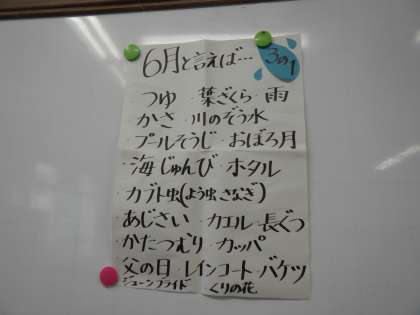 6月と言えば…
3の1
・つゆ ・葉ざくら ・雨
・かさ ・川のぞう水
・プールそうじ ・おぼろ月
・海じゅんび ・ホタル
・カブト虫(よう虫さなぎ)
・あじさい ・カエル ・長ぐつ
・かたつむり ・カッパ
・父の日 ・レインコート ・バケツ
ジューンブライド くりの花